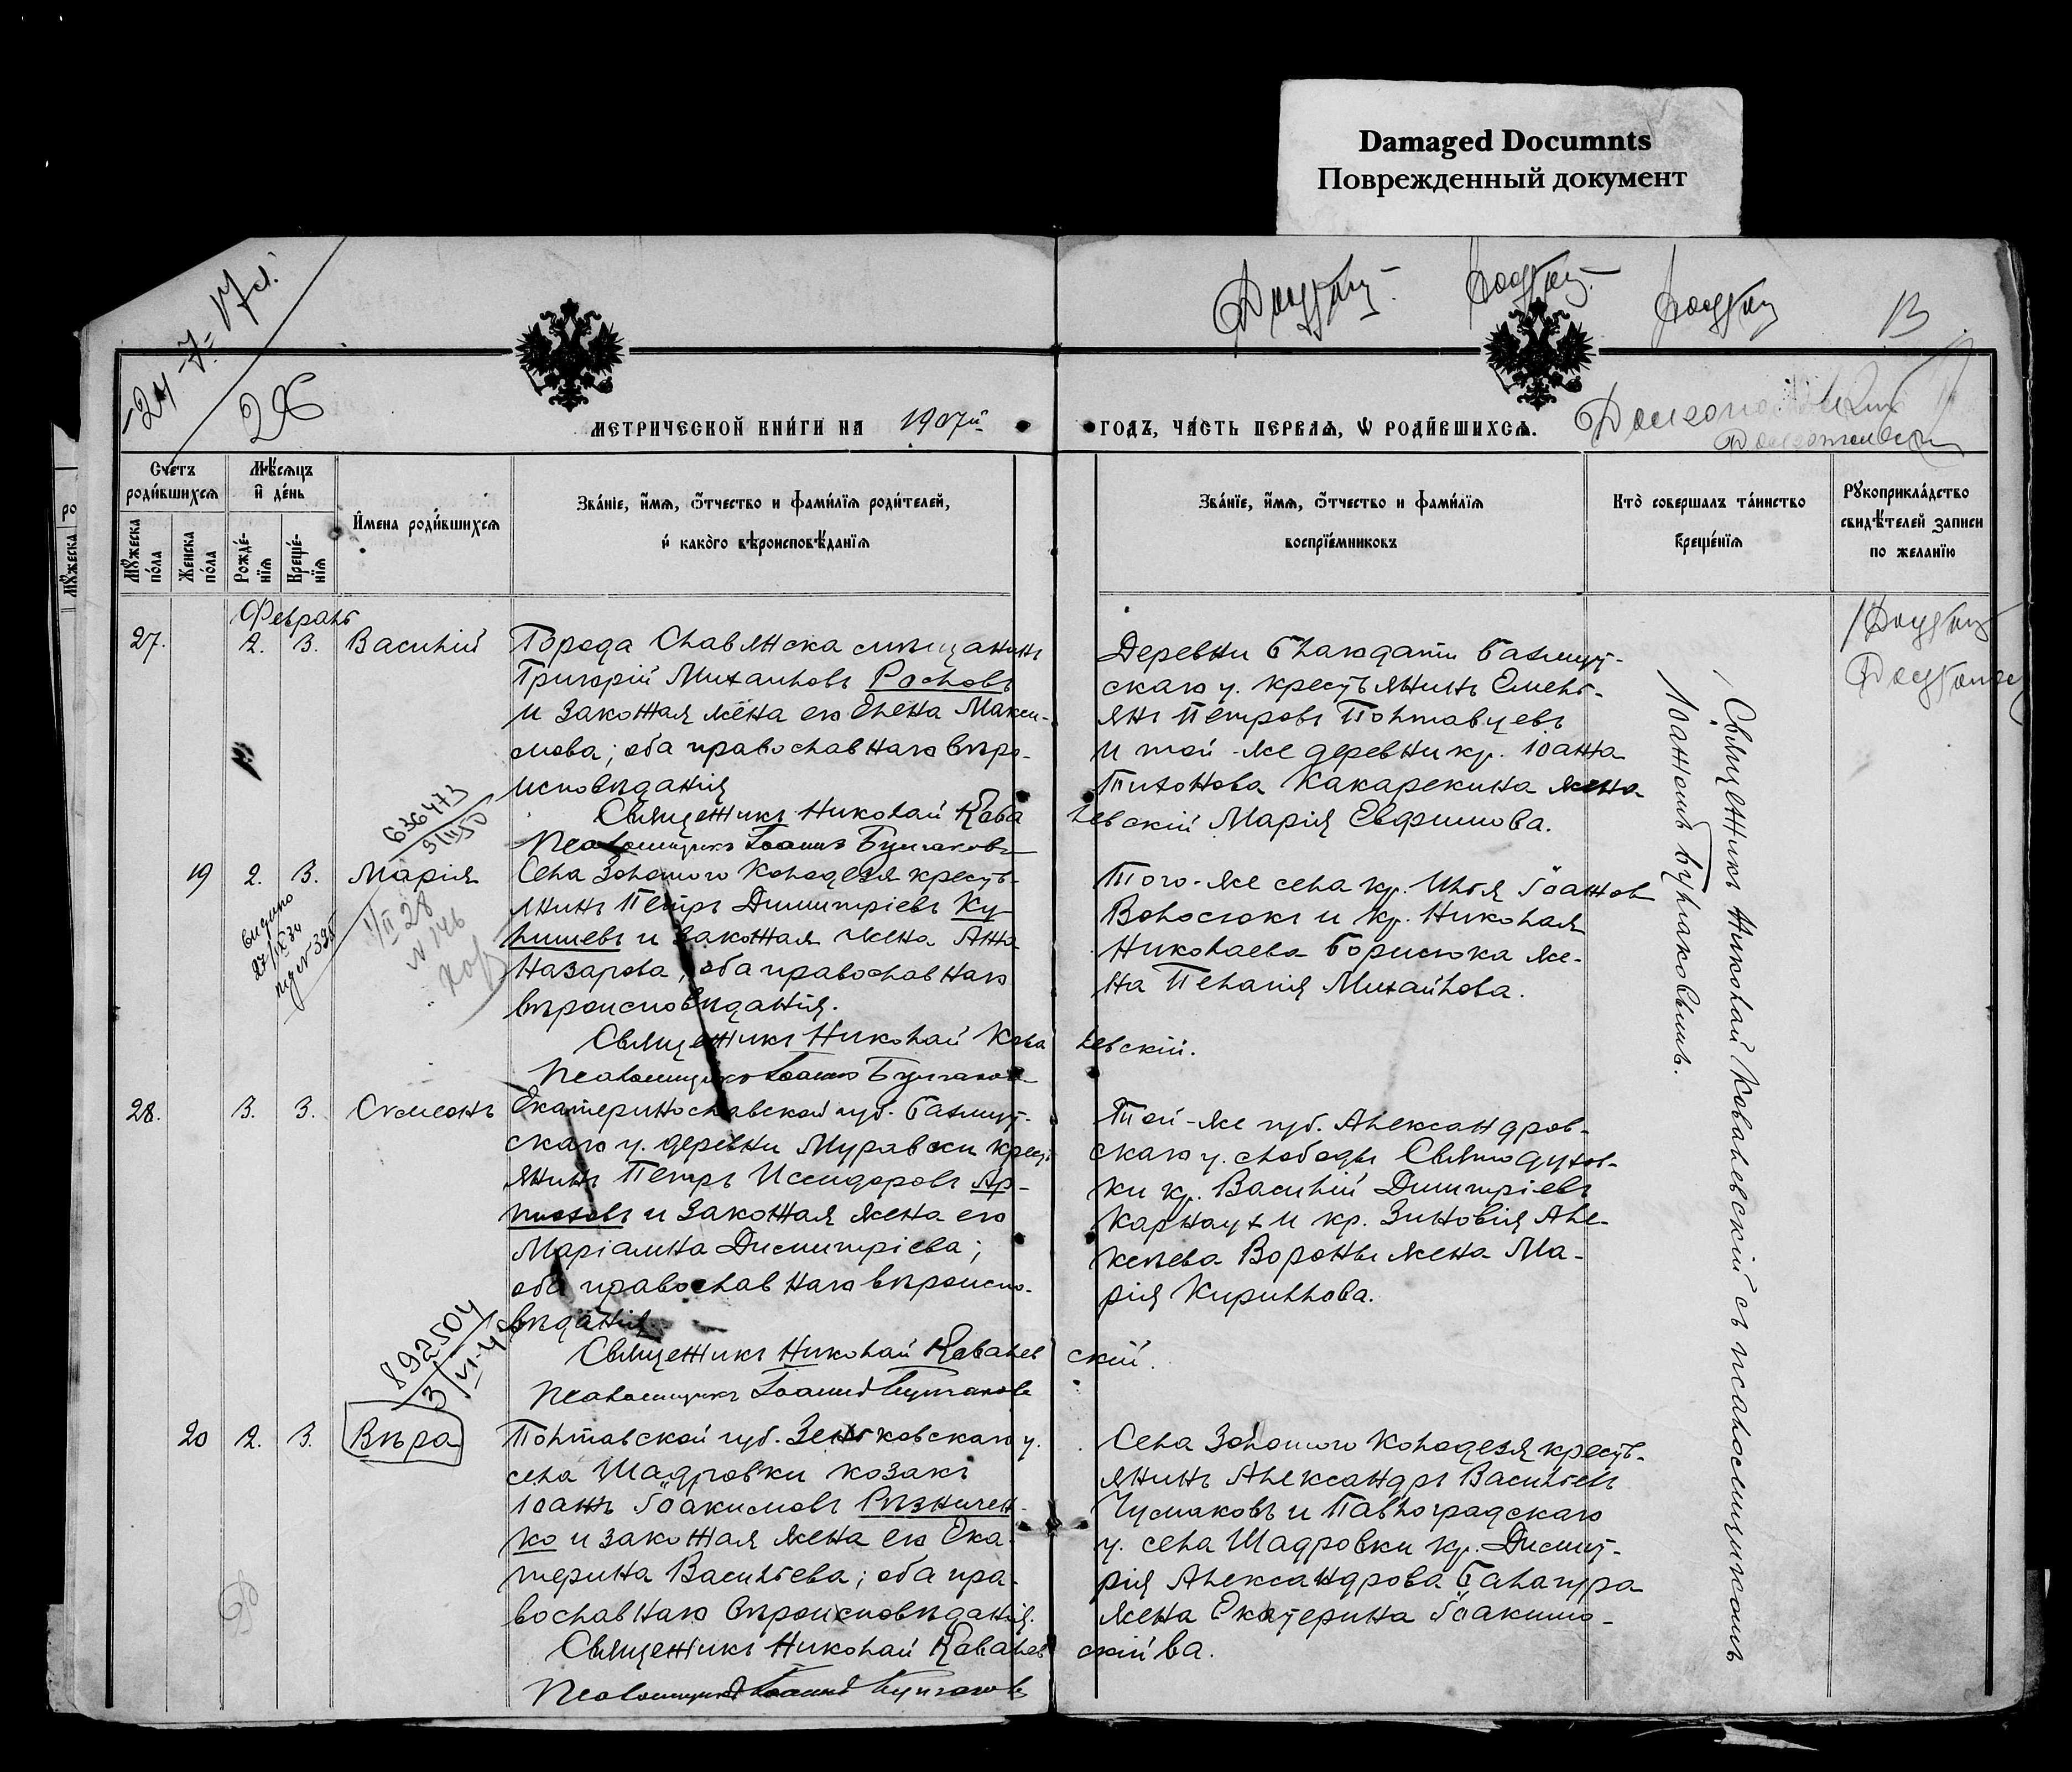 Damaged Documnts
Поврежденный документ
26
13
МЕТРИЧЕСКОЙ КНИГИ НА 1907й ГОДЪ, ЧАСТЬ ПЕРВАЯ, Ѡ РОДИВШИХСЯ.
Счетъ родившихся
Мѣсяцъ и день
Имена родившихся
Званіе, имя, ѿчество и фамилія родителей,
и какого вѣроисповѣданія
Мужеска пола
Женска пола
Рожде-нія
Креще-нія
Званіе, имя, ѿчество и фамилія
воспріемниковъ
Кто совершалъ таинство
крещенія
Рукоприкладство
свидѣтелей записи
по желанію
Февраль
27. 2. 3. Василій
Города Славянска мѣщанинъ
Григорій Михаиловъ
и законная жена его Елена Макси-
мова; оба православнаго вѣро-
исповѣданія
Священникъ Николай Кова
Псаломщикъ Іоаннъ Булгаковъ
Деревни Благодати Бахмут-
скаго у. крестьянинъ Емель-
янъ Петровъ Полтавцевъ
и той-же деревни кр. Іоанна
Тихонова Какарекина жена
левскій Марія Евфимова.
636473
19 2. 3. Марія
1/II 28
№ 146
Села Золотого Колодезя кресть-
янинъ Петръ Димитріевъ Ку-
лишевъ и законная жена Анна
Назарова, оба православнаго
вѣроисповѣданія.
Священникъ Николай Кова
Псаломщикъ Іоаннъ Булгаковъ
Того-же села кр. Илья Іоаннов
Волосюкъ и кр. Николая
Николаева Борисюка же-
на Пелагія Михайлова.
левскій.
28. 3. 3. Симеонъ
Екатеринославской губ. Бахмут-
скаго у. деревни Муравки крест
янинъ Петръ Исидоровъ Ар-
хиповъ и законная жена его
Маріамна Димитріева;
оба православнаго вѣроиспо-
вѣданія.
Священникъ Николай Ковалев
Псаломщикъ Іоаннъ Булгаковъ
Той-же губ. Александров-
скаго у. слободы Святодухов-
ки кр. Василій Димитріевъ
Карнаух и кр. Зиновія Але-
ксѣева Вороны жена Ма-
рія Кириллова.
скій.
892504
20 2. 3. Вѣра
Полтавской губ. Зеньковскаго у.
села Шадровки козакъ
Іоаннъ Іоакимовъ Рѣзничен-
ко и законная жена его Ека-
терина Васильева; оба пра-
вославнаго вѣроисповѣданія.
Священникъ Николай Ковалев
Псаломщикъ Іоаннъ Булгаковъ
Села Золотого Колодезя кресть-
янинъ Александръ Васильевъ
Чумаковъ и Павлоградскаго
у. села Шадровки кр. Димит-
рія Александрова Балагура
жена Екатерина Іоакимо-
скій ва.
Священникъ Николай Ковалевскій съ псаломщикомъ
Іоанномъ Булгаковымъ.